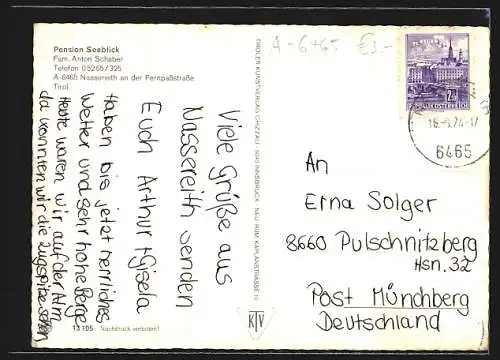 Pension Seeblick
Fam. Anton Schaber
Telefon 05265/325
A-6465 Nassereith an der Fernpaßstraße
Tirol
A-6465 €3.-
2 S
REPUBLIK ÖSTERREICH
18.-9.74-17
6465
Viele Grüße aus
Nassereith senden
Euch Arthur + Gisela
Haben bis jetzt herrliches
Wetter und sehr hohe Berge
Heute waren wir auf der Alm
da konnten wir die Zugspitze sehen
TIROLER KUNSTVERLAG CHIZZALI · 6040 INNSBRUCK · NEU RUM KAPLANSTRASSE 10
KTV
An
Erna Solger
8660 Pulschnitzberg
Hsn. 32
Post Münchberg
Deutschland
13 105 Nachdruck verboten!